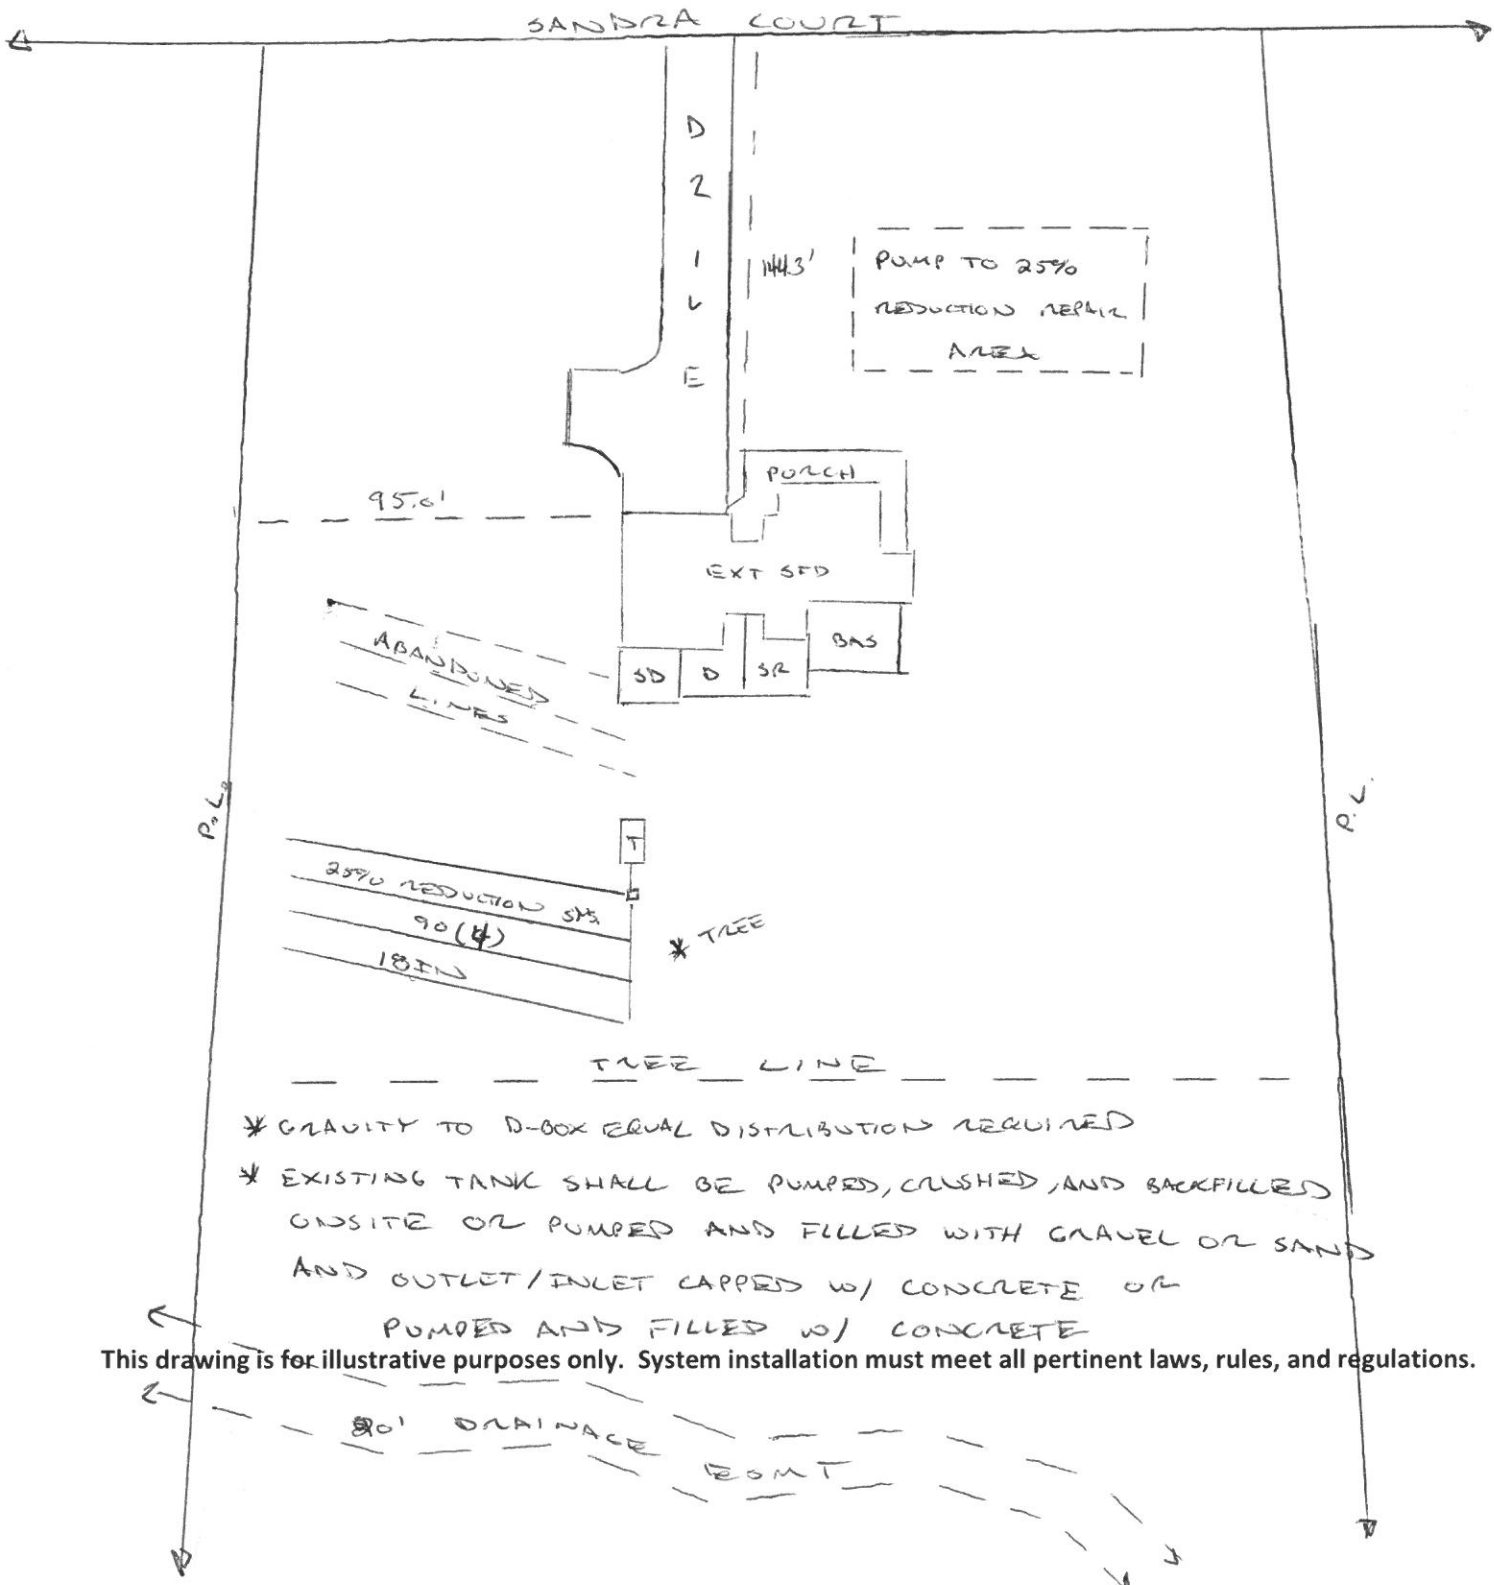 SANDRA COURT
DRIVE
144.3'
PUMP TO 25%
REDUCTION REPAIR
AREA
PORCH
95.0'
EXT SFD
ABANDONED
LINES
SD
D
SR
BAS
P.L.
P.L.
T
25% REDUCTION SYS.
90(4)
18IN
* TREE
TREE LINE
* GRAVITY TO D-BOX EQUAL DISTRIBUTION REQUIRED
* EXISTING TANK SHALL BE PUMPED, CRUSHED, AND BACKFILLED
ONSITE OR PUMPED AND FILLED WITH GRAVEL OR SAND
AND OUTLET/INLET CAPPED W/ CONCRETE OR
PUMPED AND FILLED W/ CONCRETE
This drawing is for illustrative purposes only. System installation must meet all pertinent laws, rules, and regulations.
DRAINAGE
ESMT